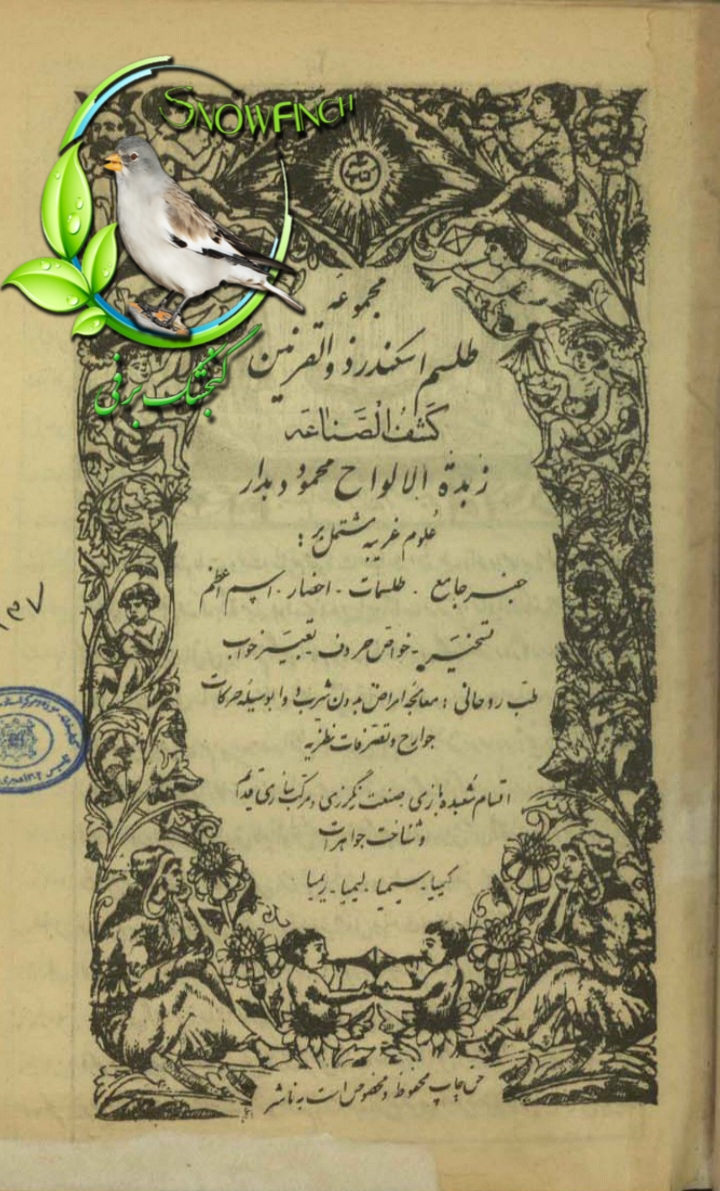 SNOWFINCH
گنجشک برفی
مجموعه
طلسم اسکندر ذوالقرنین
کَشفُ الصَناعَه
زبدهٔ الالواح محمود دهدار
علوم غریبه مشتمل بر :
جفر جامع - طلسمات - احضار - اسم اعظم
تسخیر - خواص حروف تعبیر خواب
طب روحانی : معالجه امراض بدون شرب دوا بوسیله حرکات
جوارح و تصرفات نظریه
اقسام شعبده بازی صنعت رنگرزی و مرکب سازی قدیم
و شناخت جواهرات
کیمیا - سیمیا - لیمیا - ریمیا
حق چاپ محفوظ و مخصوص است به ناشر